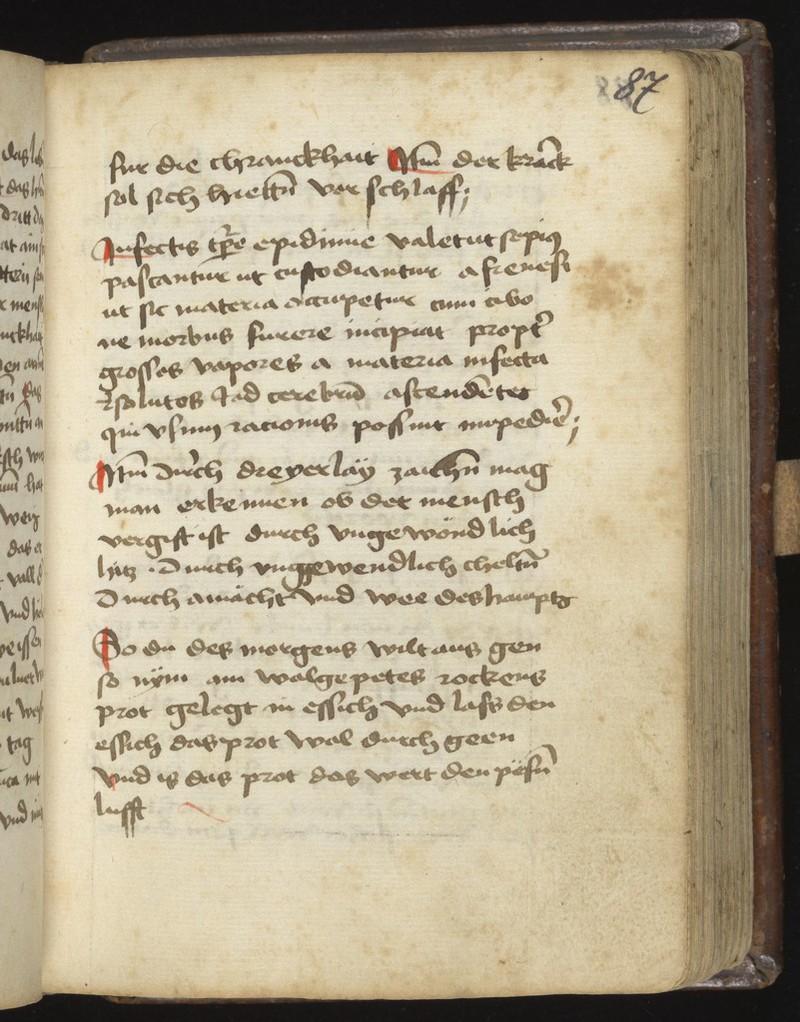 87
fur die chranckhait Itm̄ der kranck
sol sich hieltn̄ vor schlaff;
Infectis tp̄re epidimie valet ut sepiꝰ
pascantur ut custodiantur a frenesi
ut sic materia occupetur cum cibo
ne morbus furere incipiat propt̄
grossos vapores a materia infecta
resolutos & ad cerebrū ascendētes
qui vsum racionis possint impedire;
Itm̄ durch dreyerläy zaichn̄ mag
man erkennen ob der mensch
vergift ist durch vngewöndlich
hitz . Durch vngewendlich cheltn̄
Durch amächt vnd wee des haupts
So du des morgens wilt aus gen
so nÿm ain walgepetes rockens
prot gelegt in essich vnd lass den
essich das prot wal durch geen
vnd is das prot das wert den pösn̄
lufft